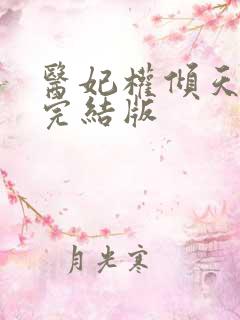 醫妃權傾天
完結版
月光寒